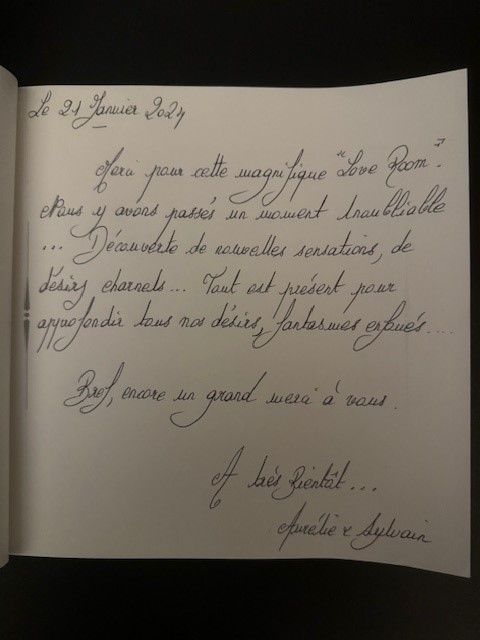 Le 21 Janvier 2024
Merci pour cette magnifique "Love Room".
Nous y avons passés un moment Inoubliable
... Découverte de nouvelles sensations, de
désirs charnels... Tout est présent pour
approfondir tous nos désirs, fantasmes enfoués....
Bref, encore un grand merci à vous.
A très Bientôt...
Aurélie & Sylvain